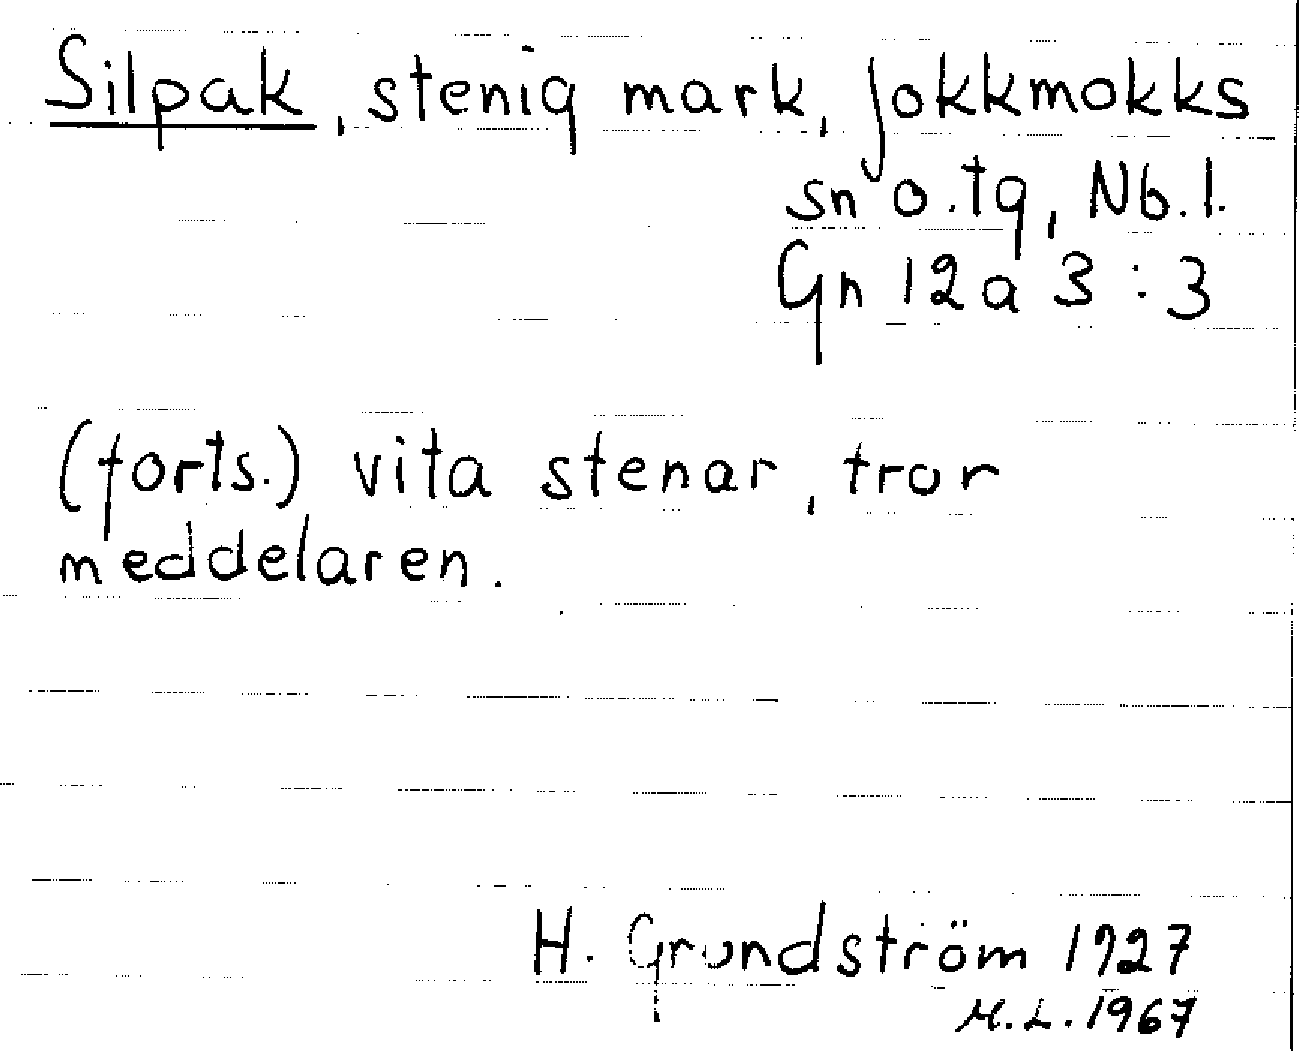 Silpak, stenig mark, Jokkmokks
sn o. tg, Nb. l.
Gn 12a 3:3
(forts.) vita stenar, tror
meddelaren.
H. Grundström 1927
M.L. 1967